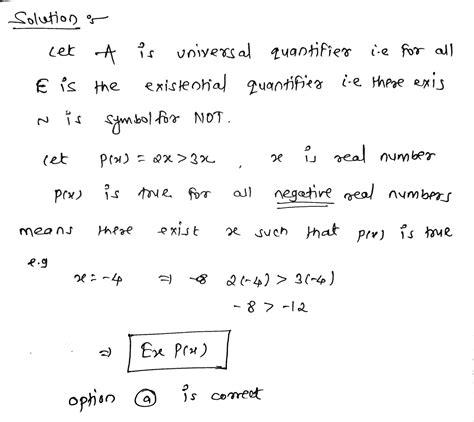 Solution :-
Let A is universal quantifier i.e for all
E is the existential quantifier i.e there exis
~ is symbol for NOT.
Let P(x) = 2x > 3x , x is real number
P(x) is true for all negative real numbers
means there exist x such that P(x) is true
e.g
x = -4 ⇒ -8 2(-4) > 3(-4)
-8 > -12
⇒ Ex P(x)
option ⓐ is correct